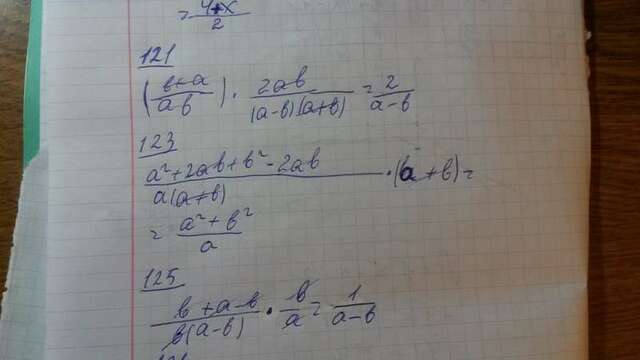 = (4+x)/2
121
((b+a)/(ab)) · (2ab)/((a-b)(a+b)) = 2/(a-b)
123
(a²+2ab+b²-2ab)/(a(a+b)) · (a+b) =
= (a²+b²)/a
125
(b+a-b)/(b(a-b)) · b/a = 1/(a-b)